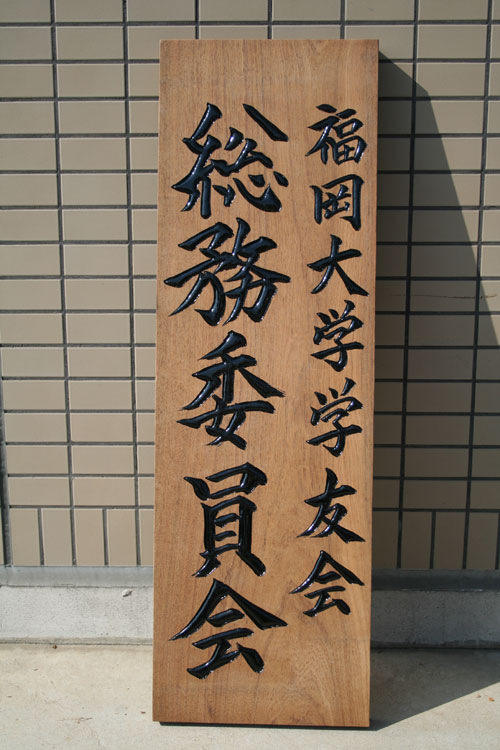 福岡大学学友会
総務委員会